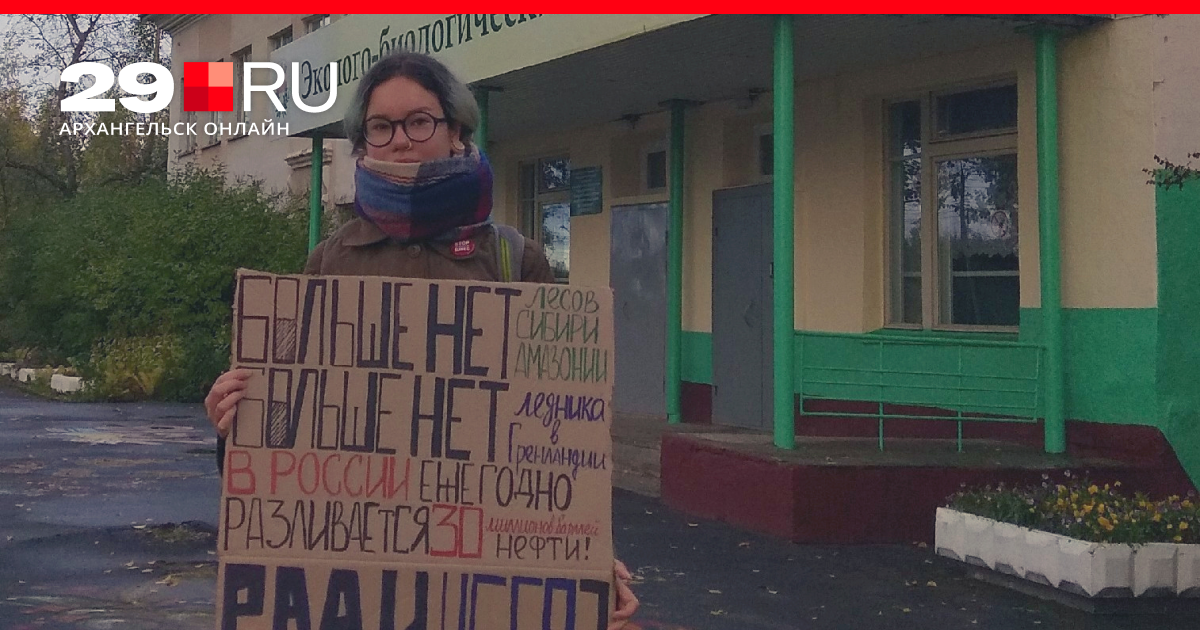 29.RU
АРХАНГЕЛЬСК ОНЛАЙН
Эколого-биологический
БОЛЬШЕ НЕТ лесов
СИБИРИ
АМАЗОНИИ
БОЛЬШЕ НЕТ ледника
в
Гренландии
В РОССИИ ЕЖЕГОДНО
РАЗЛИВАЕТСЯ 30 миллионов баррелей
НЕФТИ!
РАДИ ЧЕГО?